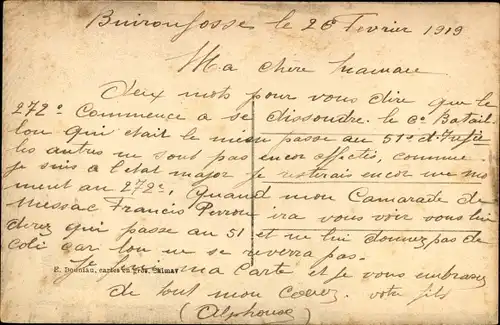 Buironfosse le 26 Fevrier 1919
Ma chère maman
deux mots pour vous dire que le
272e commence a se dissoudre. le 6e Batail-
lon qui etait le mien passe au 51e d'Infie
les autres ne sont pas encor effectés, comme
je suis a l'etat major je resterais encor un mo
ment au 272e. Quand mon Camarade de
Messac Francis Perron ira vous voir vous lui
direz qui passe au 51 et ne lui donnez pas de
coli car l'on ne se reverra pas.
Je ma Carte et je vous embrasse
E. Douniau, cartes en gros,
de tout mon Coeur. votre fils
(Alphonse)